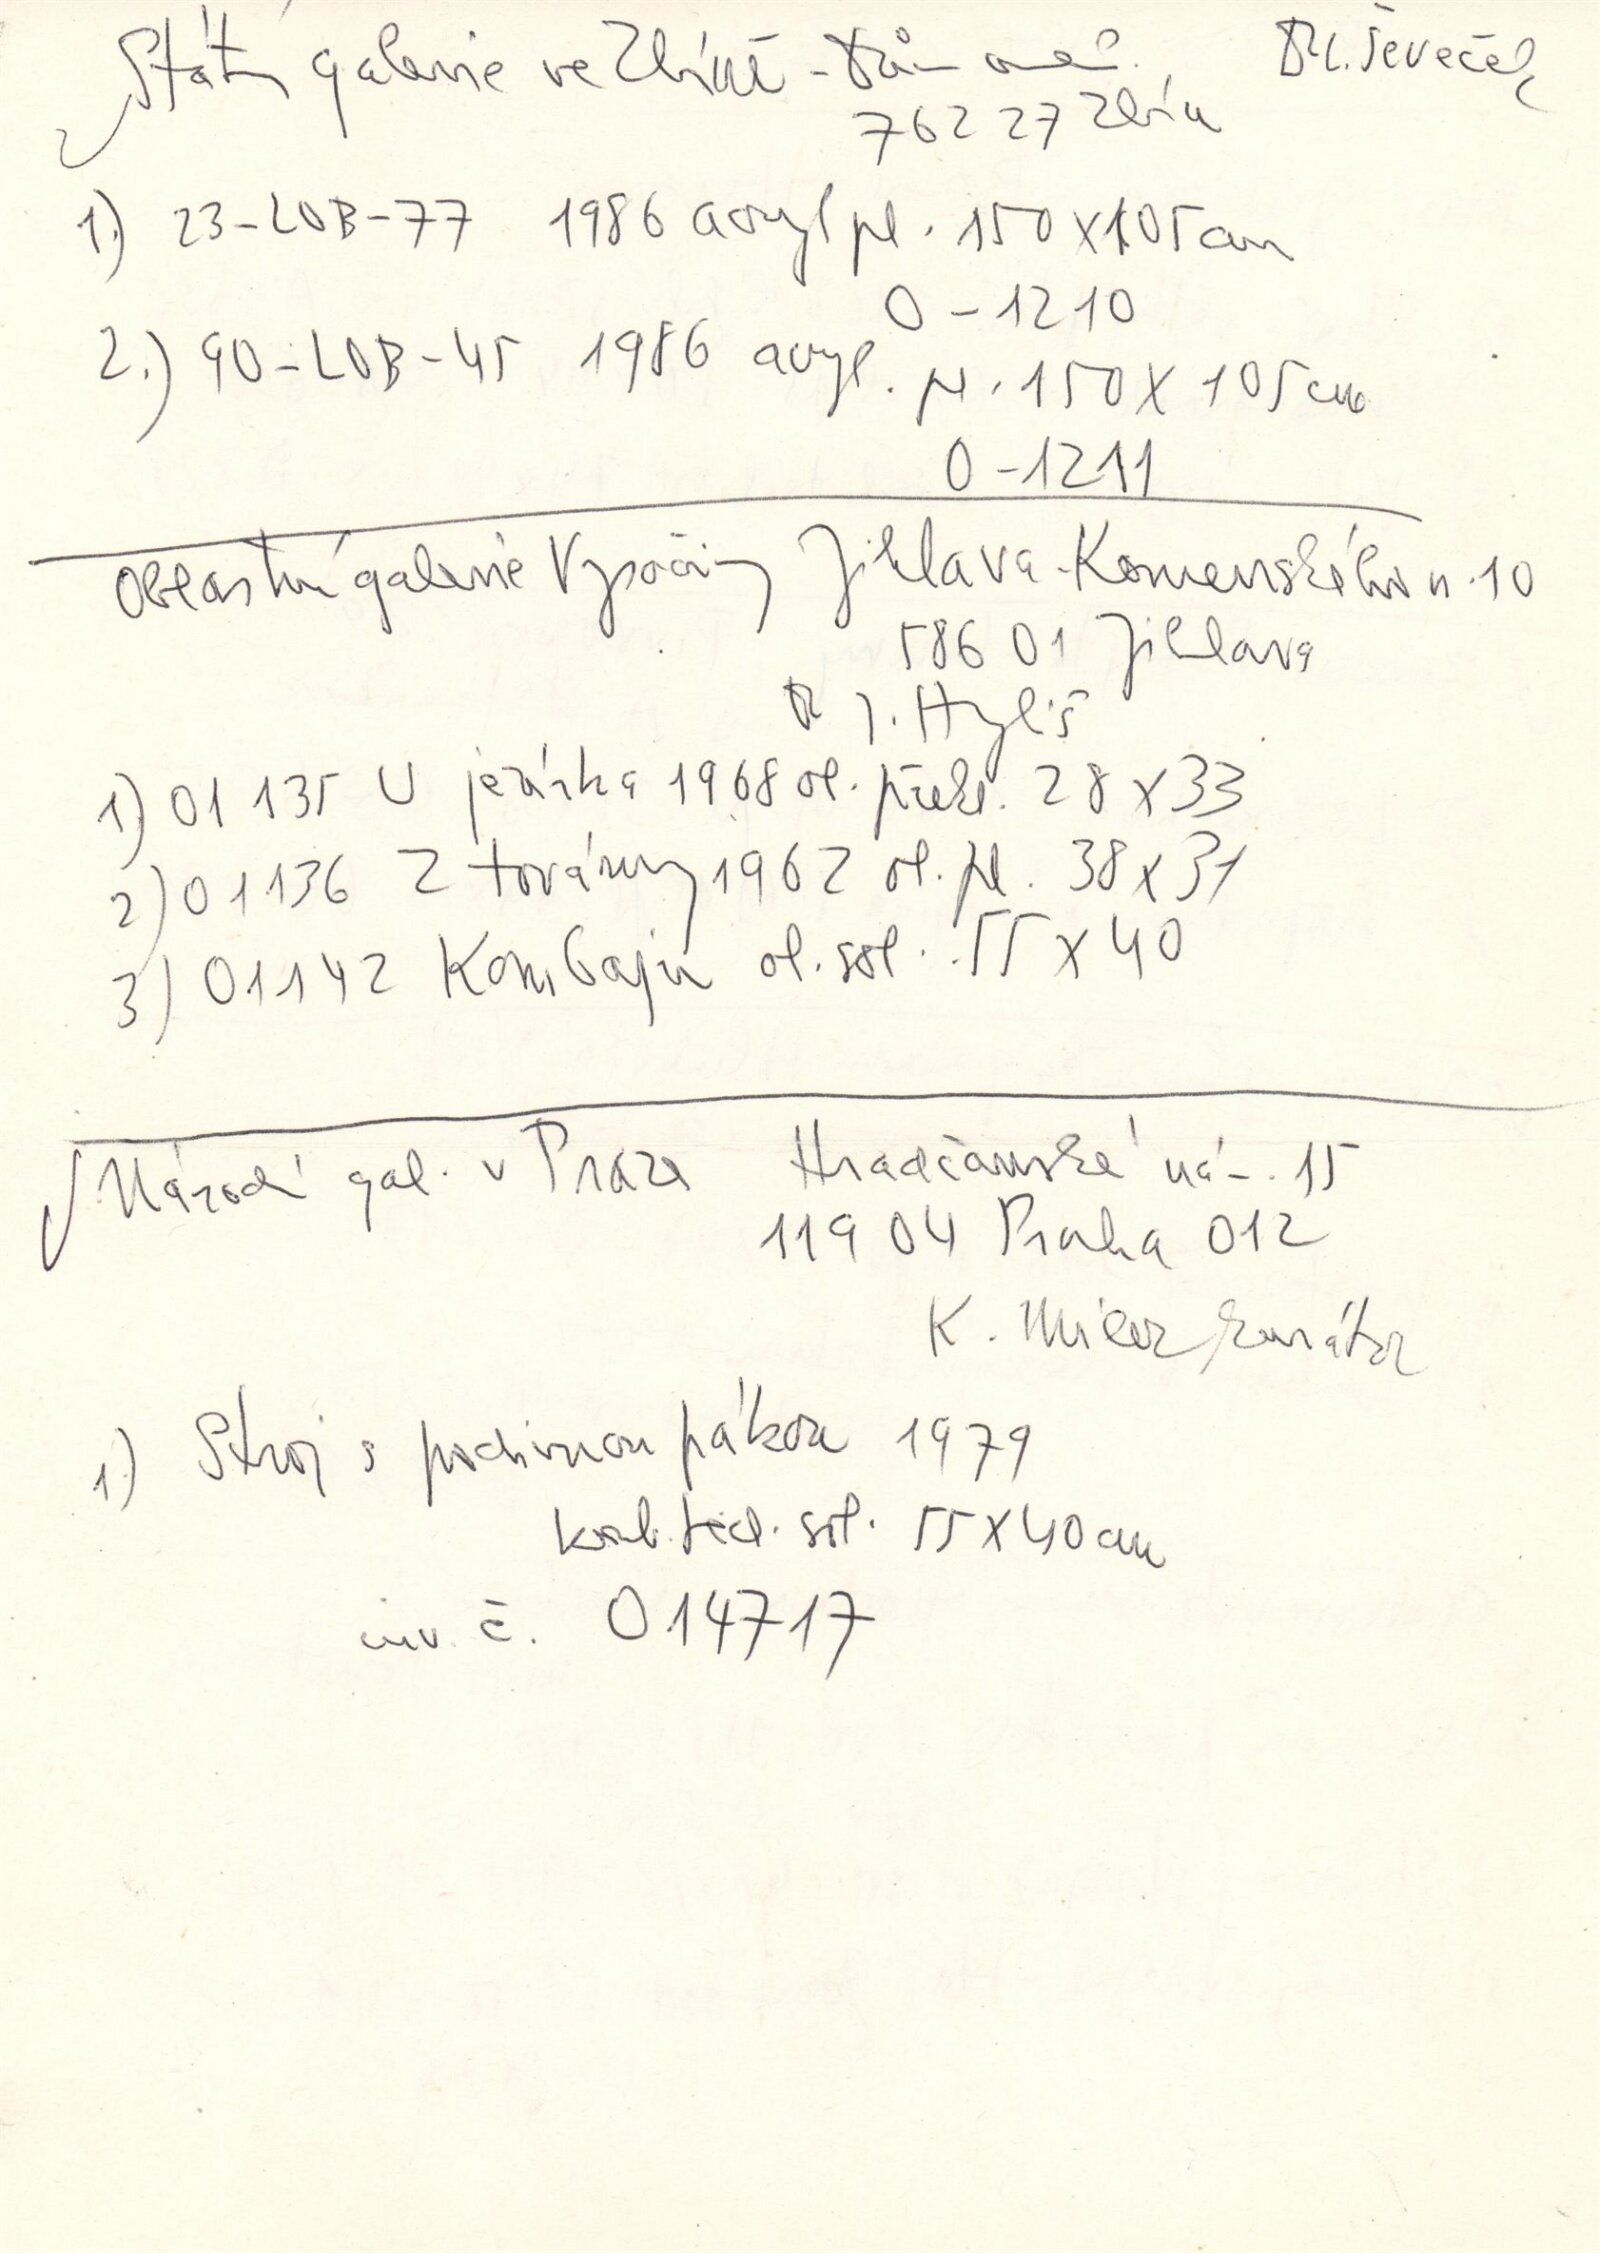 Státní galerie ve Zlíně - Dům umě. Dr. L. Ševeček
762 27 Zlín
1.) 23-LOB-77 1986 acryl pl. 150x105cm
0-1210
2.) 90-LOB-45 1986 acryl. pl. 150x105cm
0-1211
Oblastní galerie Vysočiny Jihlava-Komenského u. 10
586 01 Jihlava
Dr J. Hyliš
1) 01135 U jezírka 1968 ol. překl. 28x33
2) 01136 Z továrny 1962 ol. pl. 38x31
3) 01142 Kombajn ol. sol. 55x40
Národní gal. v Praze Hradčanské nám. 15
119 04 Praha 012
K. Miler kurátor
1) Stroj s podivnou pákou 1979
komb. tech. sol. 55x40cm
inv. č. O14717